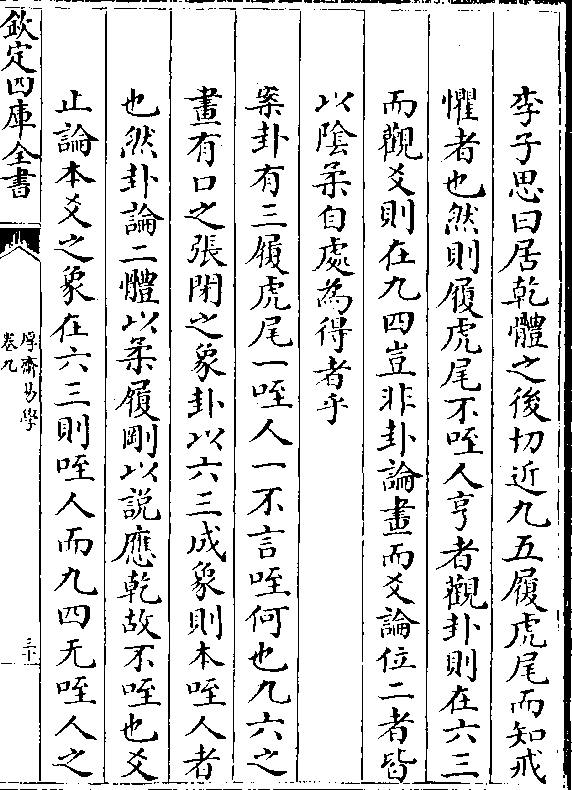 李子思曰居乾體之後切近九五履虎尾而知戒
懼者也然則履虎尾不咥人亨者觀卦則在六三
而觀爻則在九四豈非卦論畫而爻論位二者皆
以陰柔自處為得者乎
案卦有三履虎尾一咥人一不言咥何也九六之
畫有口之張閉之象卦以六三成象則本咥人者
也然卦論二體以柔履剛以說應乾故不咥也爻
止論本爻之象在六三則咥人而九四无咥人之
欽定四庫全書
厚齋易學
卷九
三十